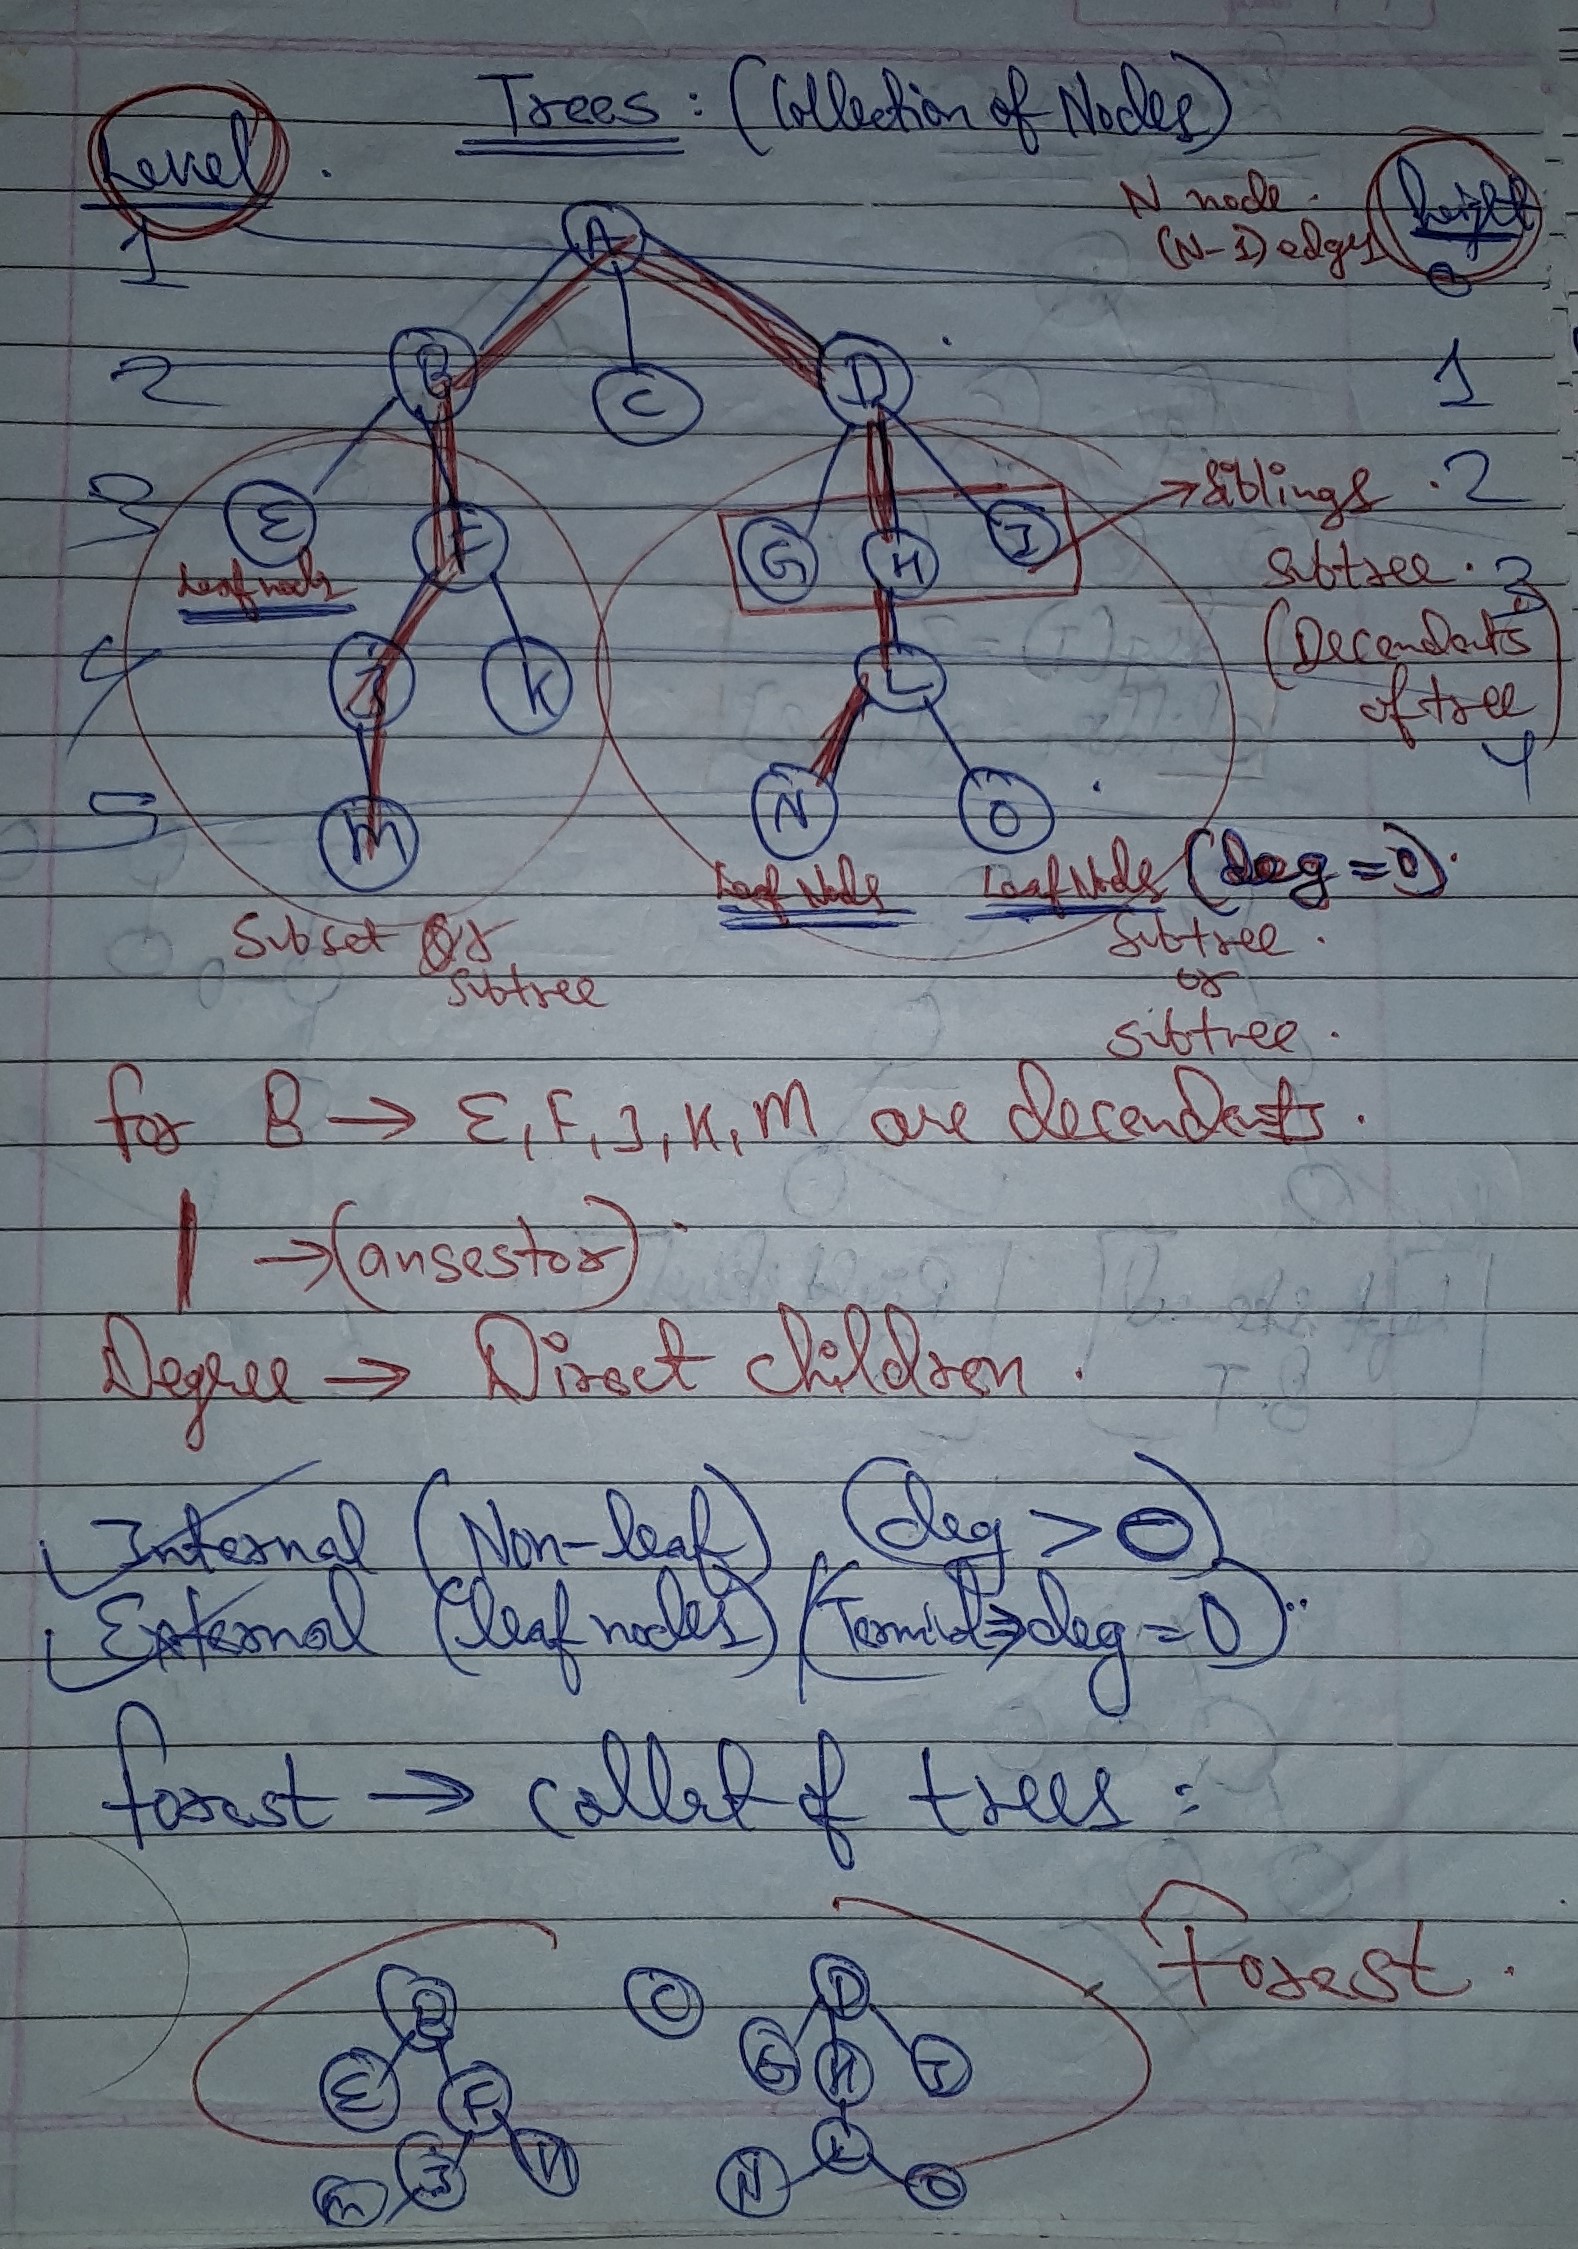 Trees : (Collection of Nodes)
Level
N node.
(N-1) edges
height
1
A
0
2
B
C
D
1
3
E
F
G
H
I
→ siblings
2
Leaf node
subtree.
3
(Decendants
of tree)
4
J
K
L
4
5
M
N
O
Leaf Node
Leaf Node
(deg = 0)
Subset or
subtree
Subtree.
or
subtree.
for B → E, F, J, K, M are decendants.
| → (ansestor)
Degree → Direct children.
Internal (Non-leaf) (deg > 0)
External (leaf nodes) ( → deg = 0)
forest → of trees :
Forest.
B
C
D
E
F
G
H
I
M
J
K
N
L
O